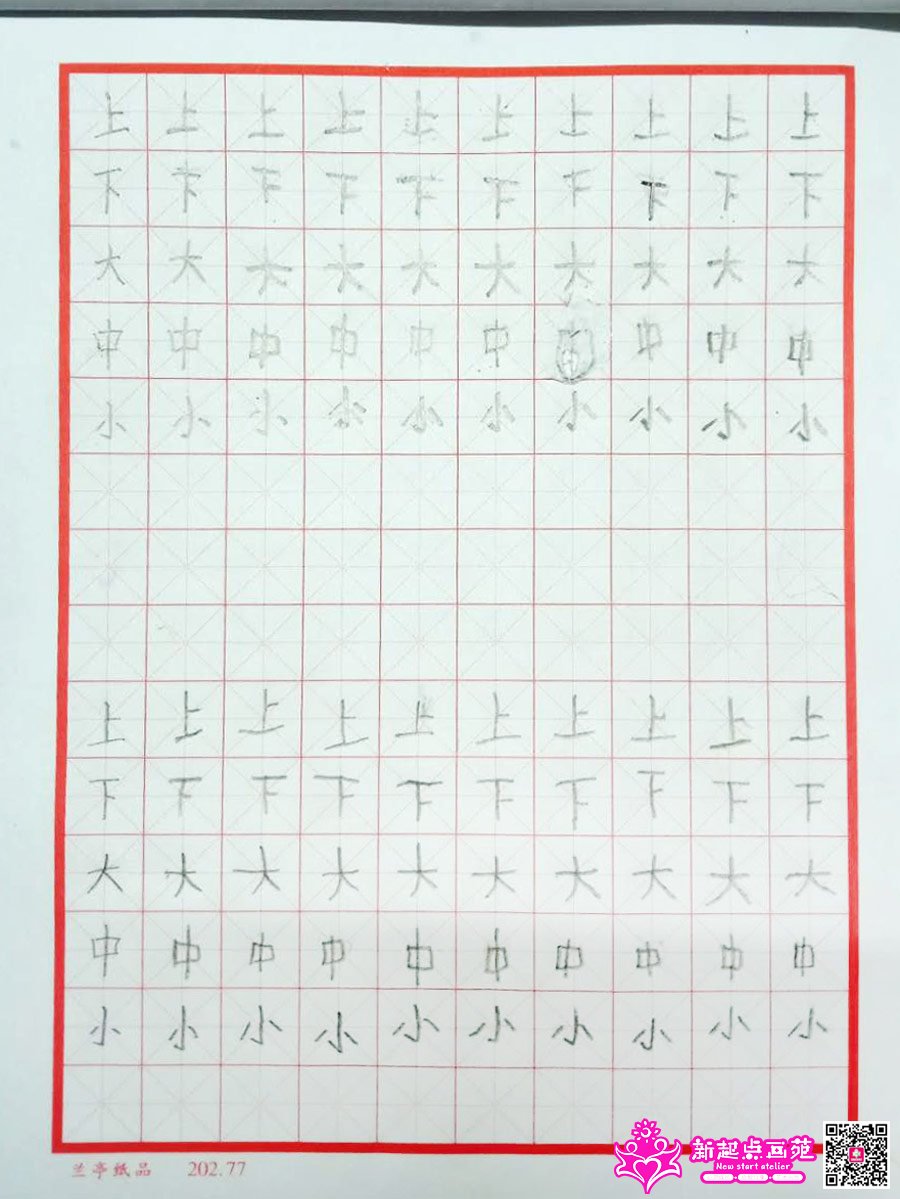 上上上上上上上上上上
下下下下下下下下下下
大大大大大大大大大大
中中中中中中中中中中
小小小小小小小小小小
上上上上上上上上上上
下下下下下下下下下下
大大大大大大大大大大
中中中中中中中中中中
小小小小小小小小小小
兰亭纸品 202.77
新起点画苑
New start atelier